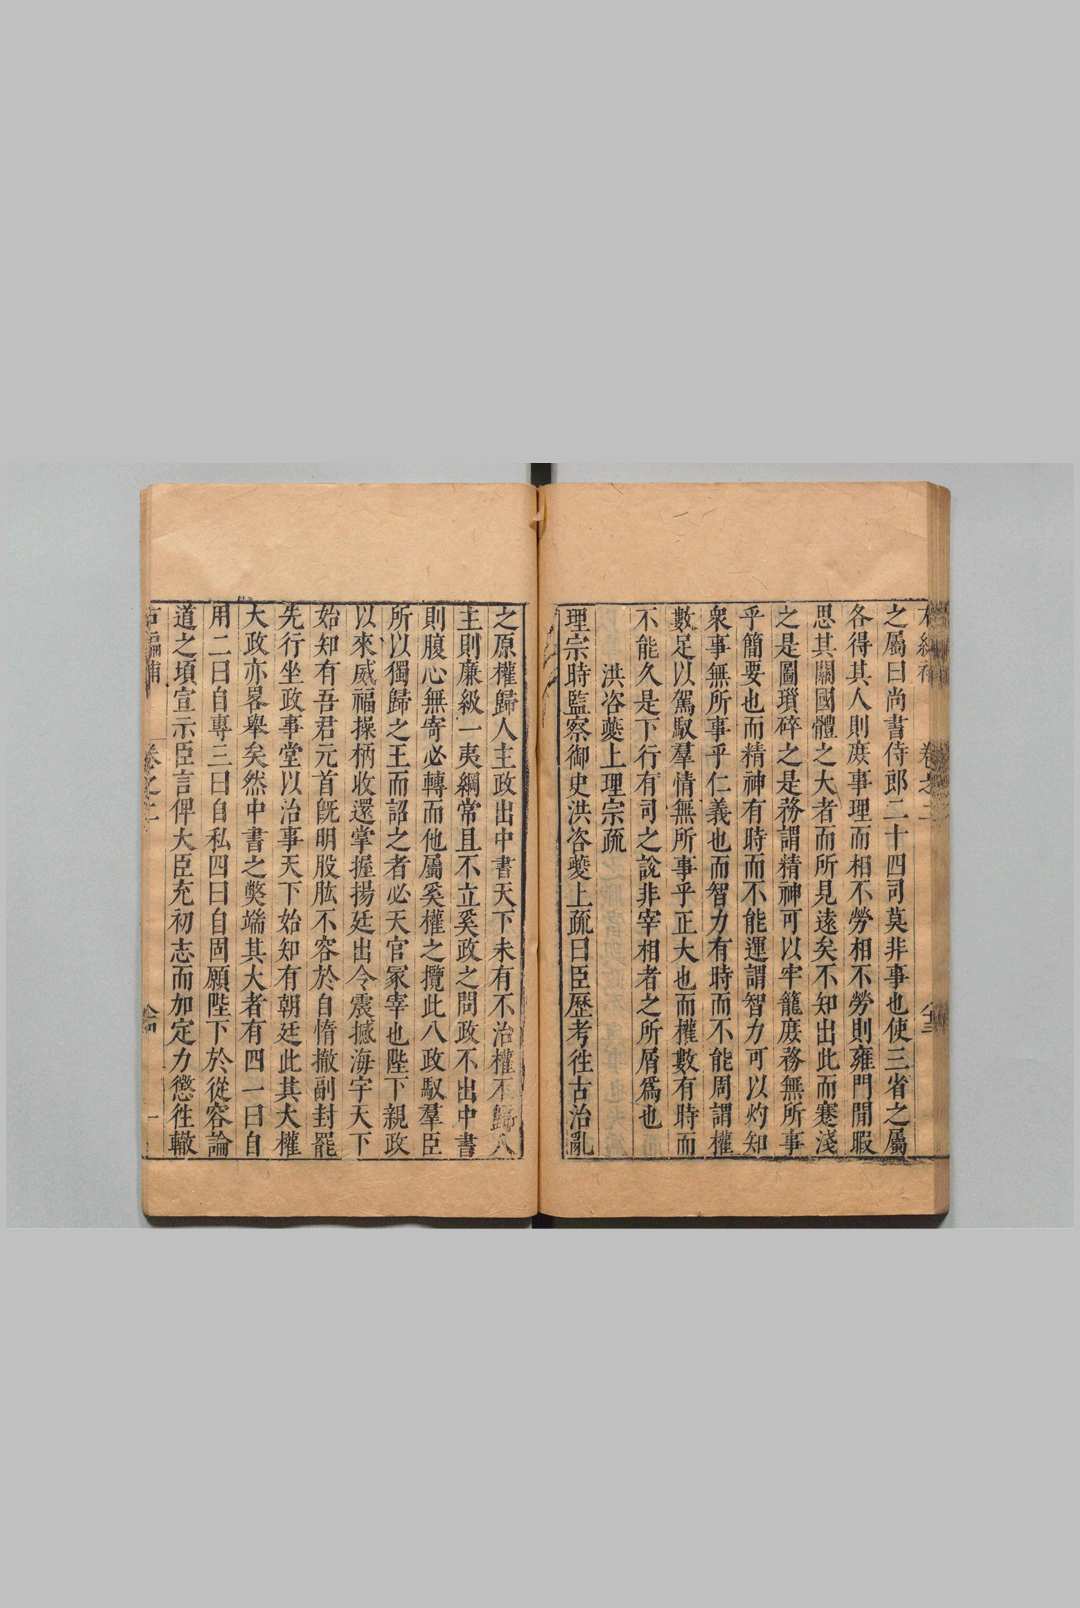 之屬曰尚書侍郎二十四司莫非事也使三省之屬
各得其人則庻事理而相不勞相不勞則雍門閒暇
思其關國體之大者而所見遠矣不知出此而蹇淺
之是圖瑣碎之是務謂精神可以牢籠庻務無所事
乎簡要也而精神有時而不能運謂智力可以灼知
衆事無所事乎仁義也而智力有時而不能周謂權
數足以駕馭羣情無所事乎正大也而權數有時而
不能久是下行有司之說非宰相者之所屑爲也
洪咨夔上理宗疏
理宗時監察御史洪咨夔上疏曰臣歷考徃古治亂
之原權歸人主政出中書天下未有不治權不歸人
主則廉級一夷綱常且不立奚政之問政不出中書
則腹心無寄必轉而他屬奚權之攬此八政馭羣臣
所以獨歸之王而詔之者必天官冢宰也陛下親政
以來威福操柄收還掌握揚廷出令震撼海宇天下
始知有吾君元首旣明股肱不容於自惰撤副封罷
先行坐政事堂以治事天下始知有朝廷此其大權
大政亦畧舉矣然中書之獘端其大者有四一曰自
用二曰自專三曰自私四曰自固願陛下於從容論
道之頃宣示臣言俾大臣充初志而加定力懲徃轍
卷之二